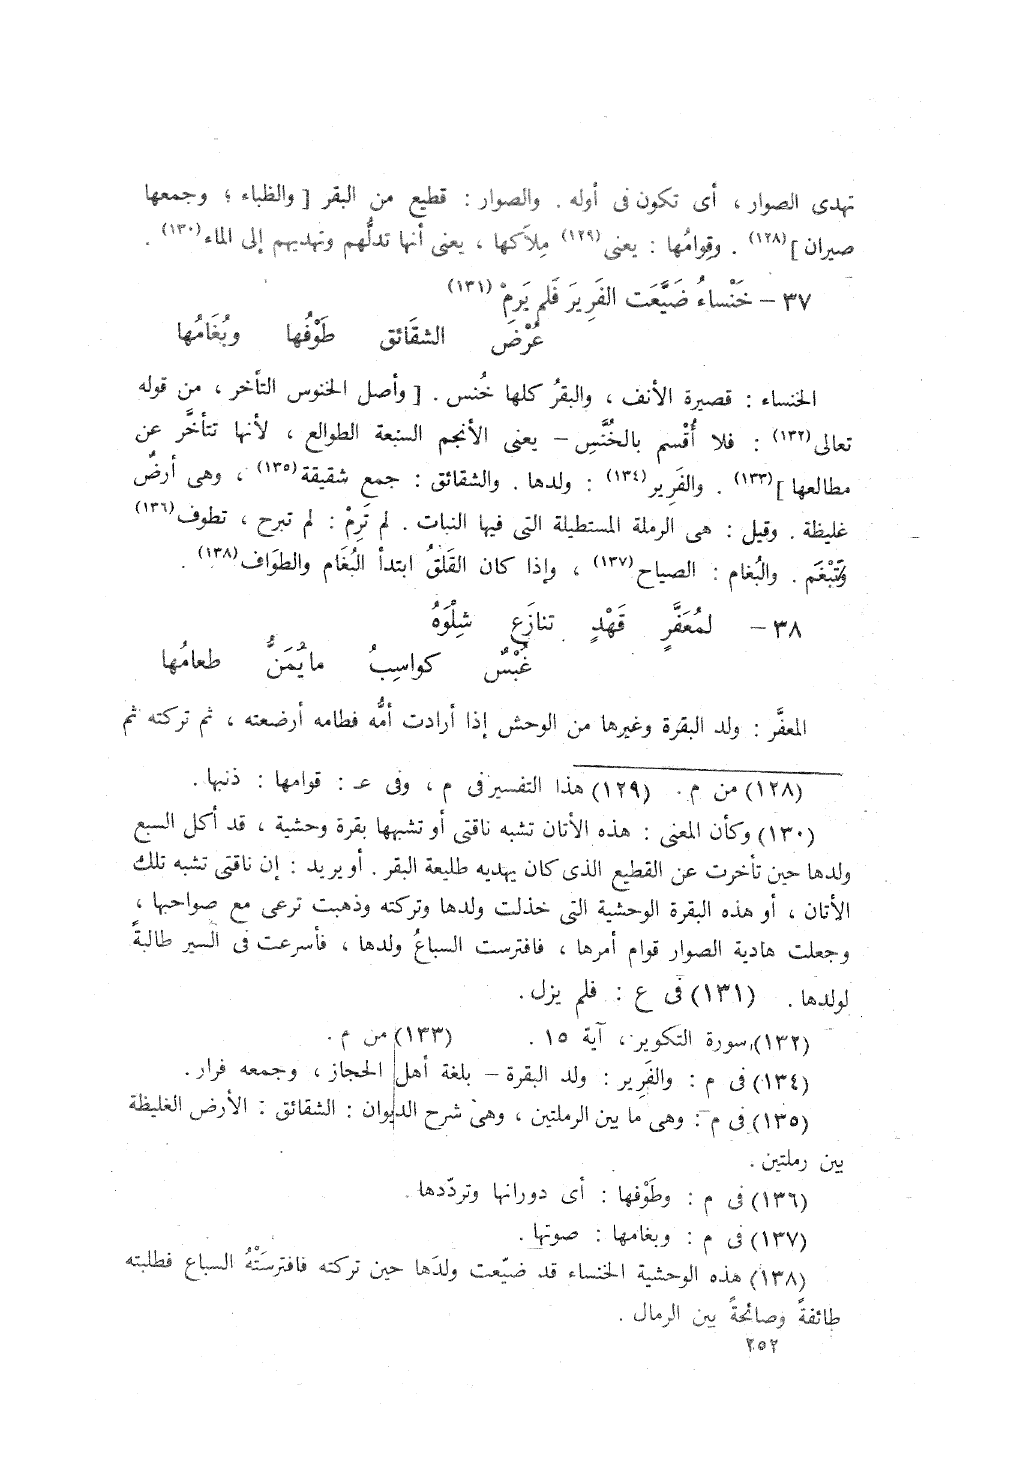 تهدى الصوار ، أى تكون فى أوله . والصوار : قطيع من البقر [ والظباء ؛ وجمعها
صيران ](١٢٨) . وقِوامُها : يعنى(١٢٩) مِلاَكها ، يعنى أنها تدلُّهم وتهديهم إلى الماء(١٣٠) .
٣٧ – خَنْساءُ ضَيَّعَت الفَرِيرَ فَلم يَرِمْ(١٣١)
عُرْضَ الشقَائق طَوْفُها وبُغَامُها
الخنساء : قصيرة الأنف ، والبقرُ كلها خُنس . [ وأصل الخنوس التأخر ، من قوله
تعالى(١٣٢) : فلا أُقْسم بالخُنَّسِ – يعنى الأنجم السبعة الطوالع ، لأنها تتأخَّر عن
مطالعها ](١٣٣) . والفَرِير(١٣٤) : ولدها . والشقائق : جمع شقيقة(١٣٥) ، وهى أرضٌ
غليظة . وقيل : هى الرملة المستطيلة التى فيها النبات . لم تَرِمْ : لم تبرح ، تطوف(١٣٦)
وتَبْغَم . والبُغام : الصياح(١٣٧) ، وإذا كان القَلقُ ابتدأ البُغَام والطوَاف(١٣٨) .
٣٨ – لمُعَفَّرٍ قَهْدٍ تنازَع شِلْوَهُ
غُبْسٌ كواسِبُ ما يُمَنُّ طعامُها
المعفَّر : ولد البقرة وغيرها من الوحش إذا أرادت أمُّه فطامه أرضعته ، ثم تركته ثم
(١٢٨) من م . (١٢٩) هذا التفسير فى م ، وفى ع : قوامها : ذنبها .
(١٣٠) وكأن المعنى : هذه الأتان تشبه ناقتى أو تشبهها بقرة وحشية ، قد أكل السبع
ولدها حين تأخرت عن القطيع الذى كان يهديه طليعة البقر . أو يريد : إن ناقتى تشبه تلك
الأتان ، أو هذه البقرة الوحشية التى خذلت ولدها وتركته وذهبت ترعى مع صواحبها ،
وجعلت هادية الصوار قوام أمرها ، فافترست السباعُ ولدها ، فأسرعت فى السير طالبةً
لولدها . (١٣١) فى ع : فلم يزل .
(١٣٢) سورة التكوير ، آية ١٥ . (١٣٣) من م .
(١٣٤) فى م : والفَرِير : ولد البقرة – بلغة أهل الحجاز ، وجمعه فرار .
(١٣٥) فى م : وهى ما بين الرملتين ، وهى شرح الديوان : الشقائق : الأرض الغليظة
بين رملتين .
(١٣٦) فى م : وطَوْفها : أى دورانها وتردّدها .
(١٣٧) فى م : وبغامها : صوتها .
(١٣٨) هذه الوحشية الخنساء قد ضيّعت ولدَها حين تركته فافترسَتْهُ السباع فطلبته
طائفةً وصائحةً بين الرمال .
٢٥٢